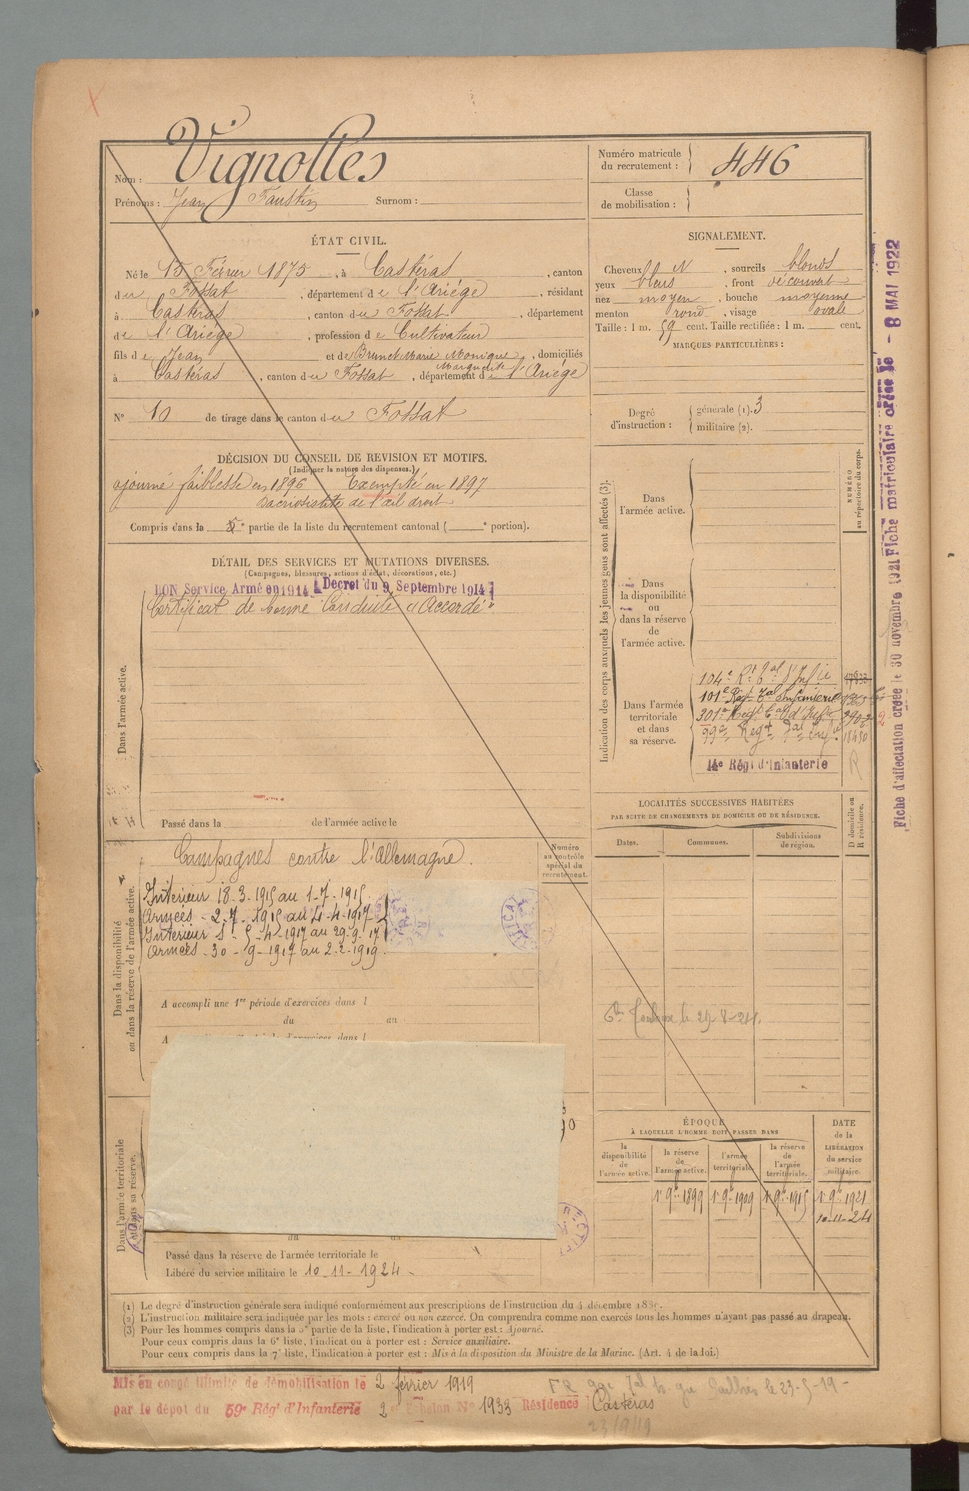 Nom : Vignolles
Prénoms : Jean Faustin Surnom :
Numéro matricule du recrutement : 446
Classe de mobilisation :
ÉTAT CIVIL.
Né le 15 Février 1875, à Castéras, canton
du Fossat, département de l'Ariège, résidant
à Castéras, canton du Fossat, département
de l'Ariège, profession de Cultivateur
fils de Jean et de Brunet Marie Monique Marguerite, domiciliés
à Castéras, canton du Fossat, département de l'Ariège
N° 10 de tirage dans le canton du Fossat
SIGNALEMENT.
Cheveux N, sourcils blonds
yeux bleus, front découvert
nez moyen, bouche moyenne
menton rond, visage ovale
Taille : 1 m. 59 cent. Taille rectifiée : 1 m. cent.
MARQUES PARTICULIÈRES :
Degré d'instruction : générale (1). 3
militaire (2).
DÉCISION DU CONSEIL DE REVISION ET MOTIFS.
(Indiquer la nature des dispenses.)
ajourné faiblesse en 1896 Exempté en 1897
de l'œil droit
Compris dans la partie de la liste du recrutement cantonal ( portion).
DÉTAIL DES SERVICES ET MUTATIONS DIVERSES.
(Campagnes, blessures, actions d'éclat, décorations, etc.)
BON Service Armé en 1914 Decret du 9 Septembre 1914
Certificat de bonne Conduite "Accordé"
Dans l'armée active.
Passé dans la de l'armée active le
Indication des corps auxquels les jeunes gens sont affectés (3).
NUMÉRO au répertoire du corps.
Dans l'armée active.
Dans la disponibilité ou dans la réserve de l'armée active.
Dans l'armée territoriale et dans sa réserve.
104e Rt Tal d'Infie
101e Regt Tal Infanterie
301e Regt Tal d'Infie
99e Regt Tal Infie 18430
14e Régt d'Infanterie
R
LOCALITÉS SUCCESSIVES HABITÉES
PAR SUITE DE CHANGEMENTS DE DOMICILE OU DE RÉSIDENCE.
Dates. Communes. Subdivisions de région. D domicile ou R résidence.
Dans la disponibilité ou dans la réserve de l'armée active.
Numéro au contrôle spécial du recrutement.
Campagnes contre l'Allemagne.
Intérieur 18-3-1915 au 1-7-1915
Armées - 2-7-1915 au 4-4-1917
Intérieur 5-4-1917 au 29-9-17
Armées - 30-9-1917 au 2-2-1919
A accompli une 1re période d'exercices dans l
du au
le 29-8-24.
Dans l'armée territoriale et dans sa réserve.
Passé dans la réserve de l'armée territoriale le
Libéré du service militaire le 10-11-1924
ÉPOQUE
À LAQUELLE L'HOMME DOIT PASSER DANS
la disponibilité de l'armée active.
la réserve de l'armée active.
l'armée territoriale.
la réserve de l'armée territoriale.
DATE de la LIBÉRATION du service militaire.
1er 9bre 1899 1er 9bre 1909 1er 9bre 1915 1er 9bre 1921
10-11-24
(1) Le degré d'instruction générale sera indiqué conformément aux prescriptions de l'instruction du 4 décembre
(2) L'instruction militaire sera indiquée par les mots : exercé ou non exercé. On comprendra comme non exercés tous les hommes n'ayant pas passé au drapeau.
(3) Pour les hommes compris dans la 5e partie de la liste, l'indication à porter est : Ajourné.
Pour ceux compris dans la 6e liste, l'indication à porter est : Service auxiliaire.
Pour ceux compris dans la 7e liste, l'indication à porter est : Mis à la disposition du Ministre de la Marine. (Art. 4 de la loi.)
Mis en congé illimité de démobilisation le 2 février 1919
par le dépot du 59e Régt d'Infanterie 2e Echelon N° 1933 Résidence Castéras
le 23-5-19
23/9/19
Fiche d'affectation créée le 30 novembre 1921 Fiche matriculaire créée le - 8 MAI 1922